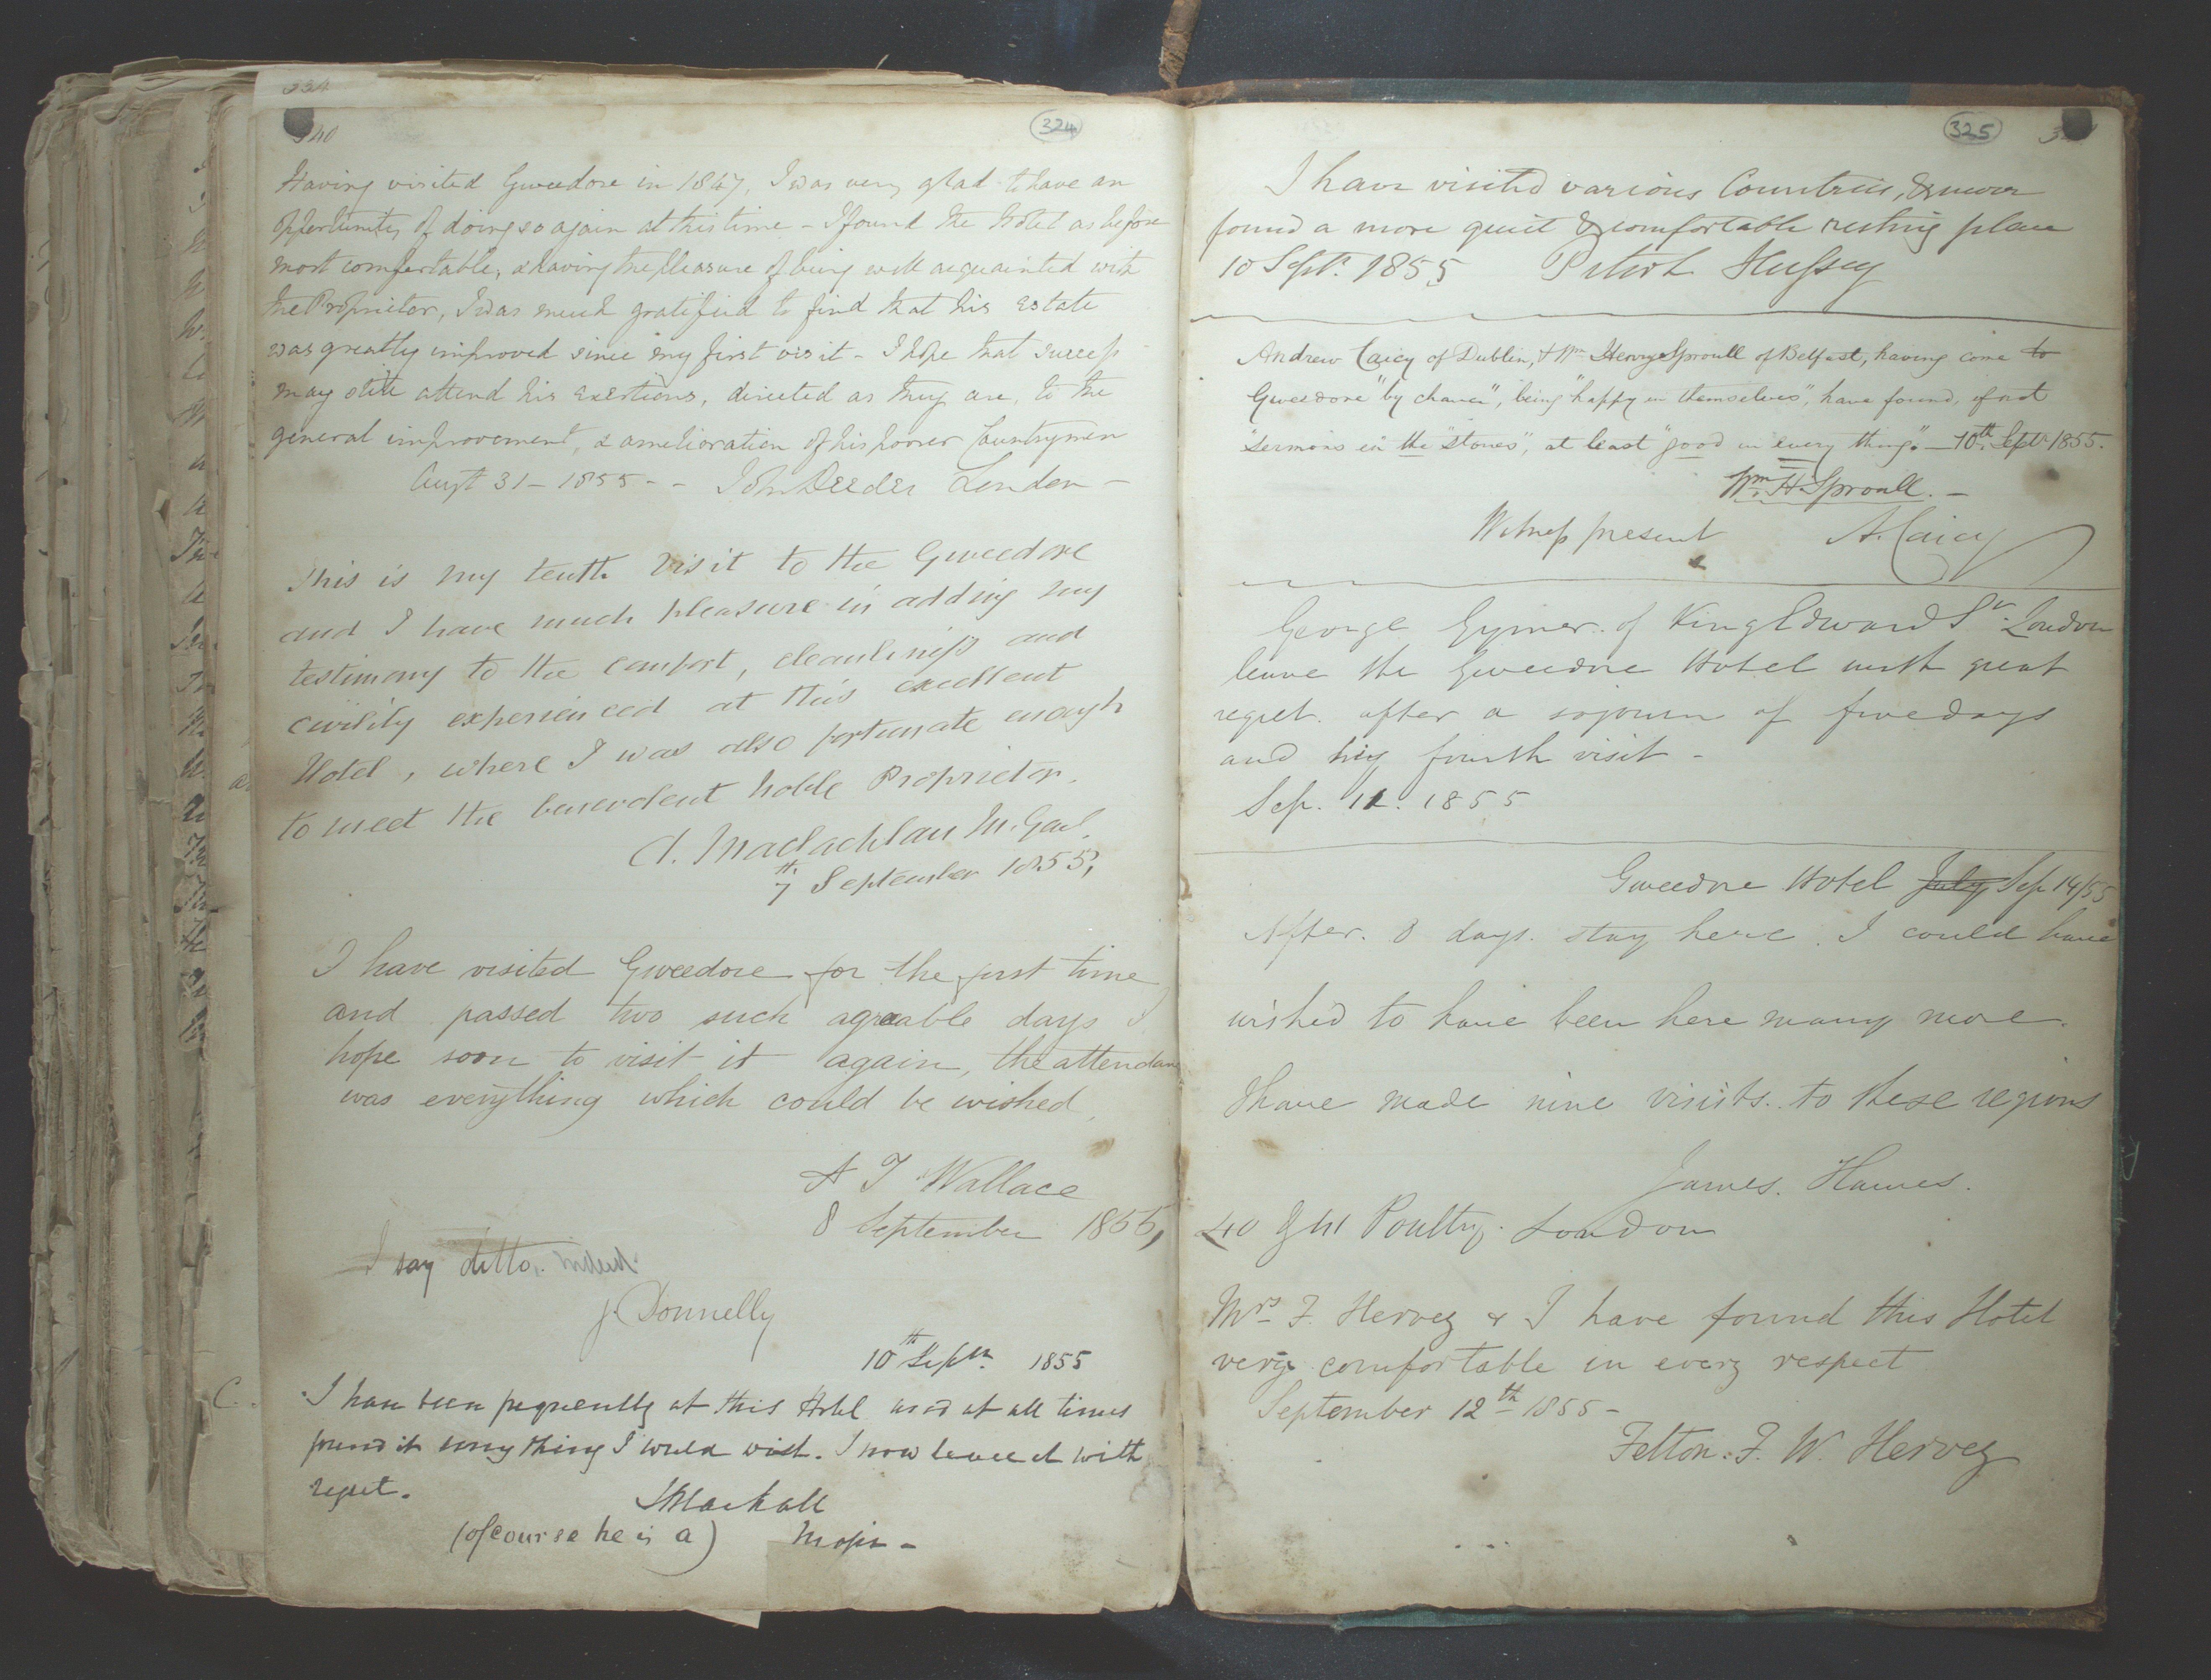 334
340
324
Having visited Gweedore in 1847, I was very glad to have an
opportunity of doing so again at this time - I found the Hotel as before
most comfortable, & having the pleasure of being well acquainted with
the Proprietor, I was much gratified to find that his estate
was greatly improved since my first visit - I hope that success
may still attend his exertions, directed as they are, to the
general improvement, & amelioration of his poorer Countrymen
Augt 31 - 1855 - - John Deedes London -
This is my tenth visit to the Gweedore
and I have much pleasure in adding my
testimony to the comfort, cleanliness and
civility experienced at this excellent
Hotel, where I was also fortunate enough
to meet the benevolent noble Proprietor.
A. Maclachlan
7th September 1855,
I have visited Gweedore for the first time
and passed two such agreable days I
hope soon to visit it again, the attendance
was everything which could be wished.
A T Wallace
8 September 1855,
I say ditto. indeed.
J. Donnelly
10th Septr. 1855
I have been frequently at this Hotel and at all times
found it every thing I would wish. I now leave it with
regret.
(of course he is a) Major -
325
I have visited various Countries, & never
found a more quiet & comfortable resting place
10 Septr. 1855 Hussey
Andrew Caicy of Dublin, & Wm Henry Sproull of Belfast, having come to
Gweedore "by chance", being "happy in themselves", have found, if not
"sermons in the "stones", at least "good in every thing". - 10th Septr 1855.
Wm. H. Sproull. -
Witness present A. Caicy
George Gymer. of King Edward St. London
leave the Gweedore Hotel with great
regret. after a sojourn of five days
and my fourth visit -
Sep. 11. 1855
Gweedore Hotel July Sep 14/55
After. 8 days. stay here. I could have
wish'd to have been here many more.
I have made nine visits.. to these regions
James. Hawes.
40 & 41 Poultry. London
Mrs F. Hervey & I have found this Hotel
very comfortable in every respect
September 12th 1855 -
Felton. F. W. Hervey